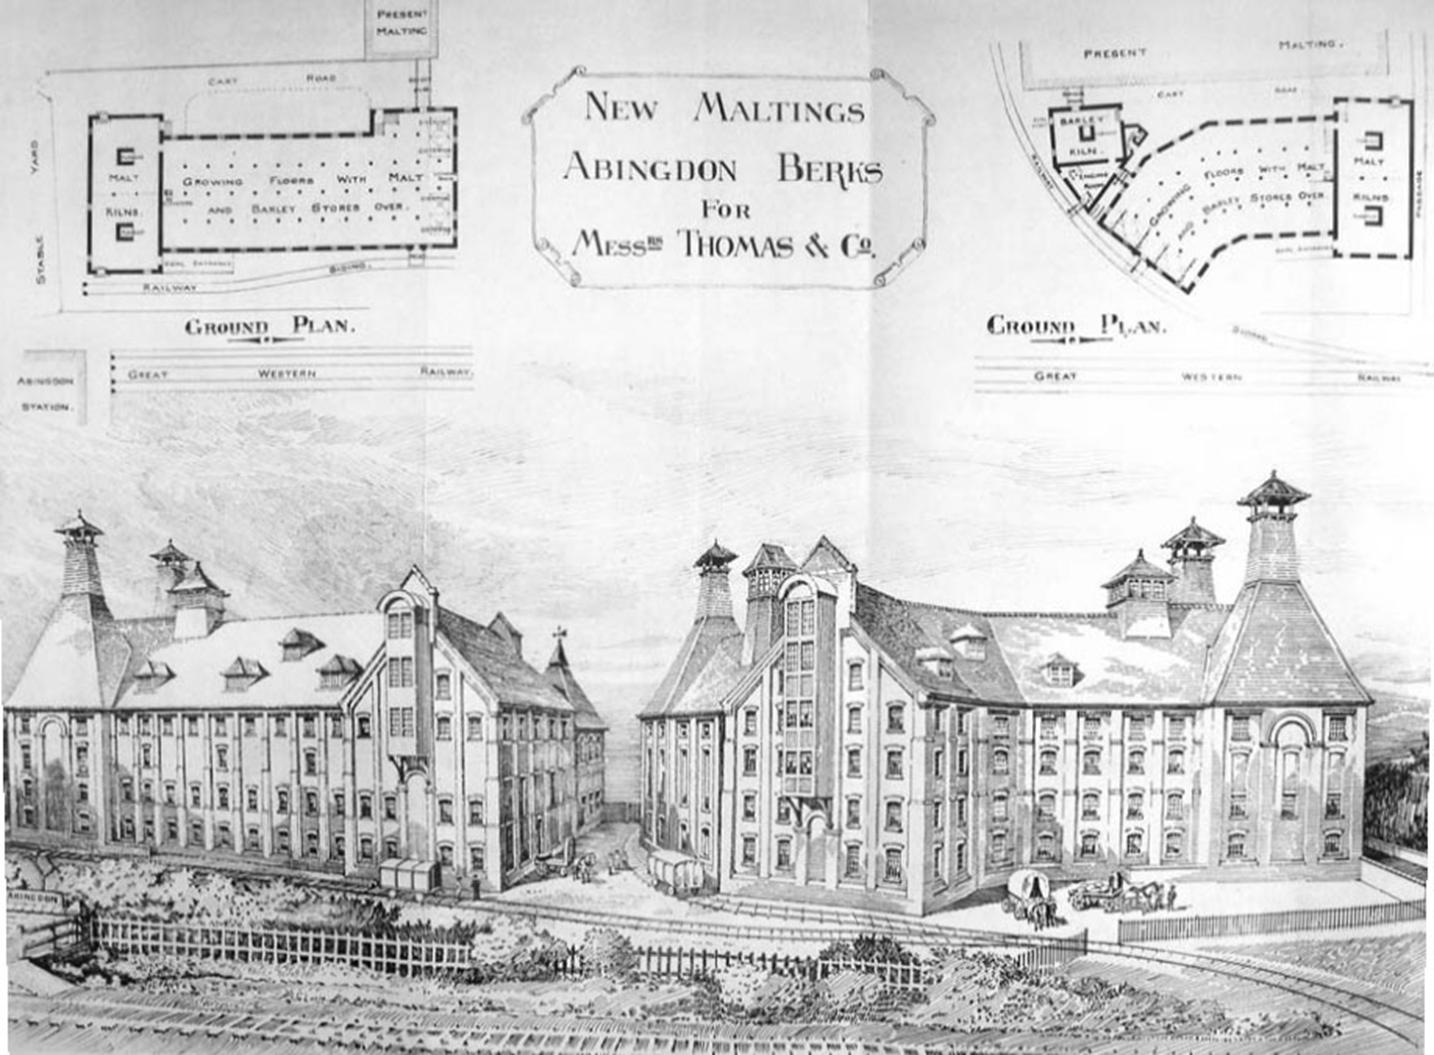 PRESENT
MALTING
CART ROAD
STABLE YARD
MALT
KILNS.
GROWING FLOORS WITH MALT
AND BARLEY STORES OVER.
COAL ENTRANCE
RAILWAY SIDING.
GROUND PLAN.
ABINGDON
STATION.
GREAT WESTERN RAILWAY.
NEW MALTINGS
ABINGDON BERKS
FOR
MESSRS THOMAS & Co.
PRESENT MALTING.
CART ROAD
RAILWAY
BARLEY
KILN.
ENGINE
ROOM
GROWING FLOORS WITH MALT
AND BARLEY STORES OVER.
MALT
KILNS
PASSAGE
COAL ENTRANCE
GROUND PLAN.
SIDING
GREAT WESTERN RAILWAY
ABINGDON